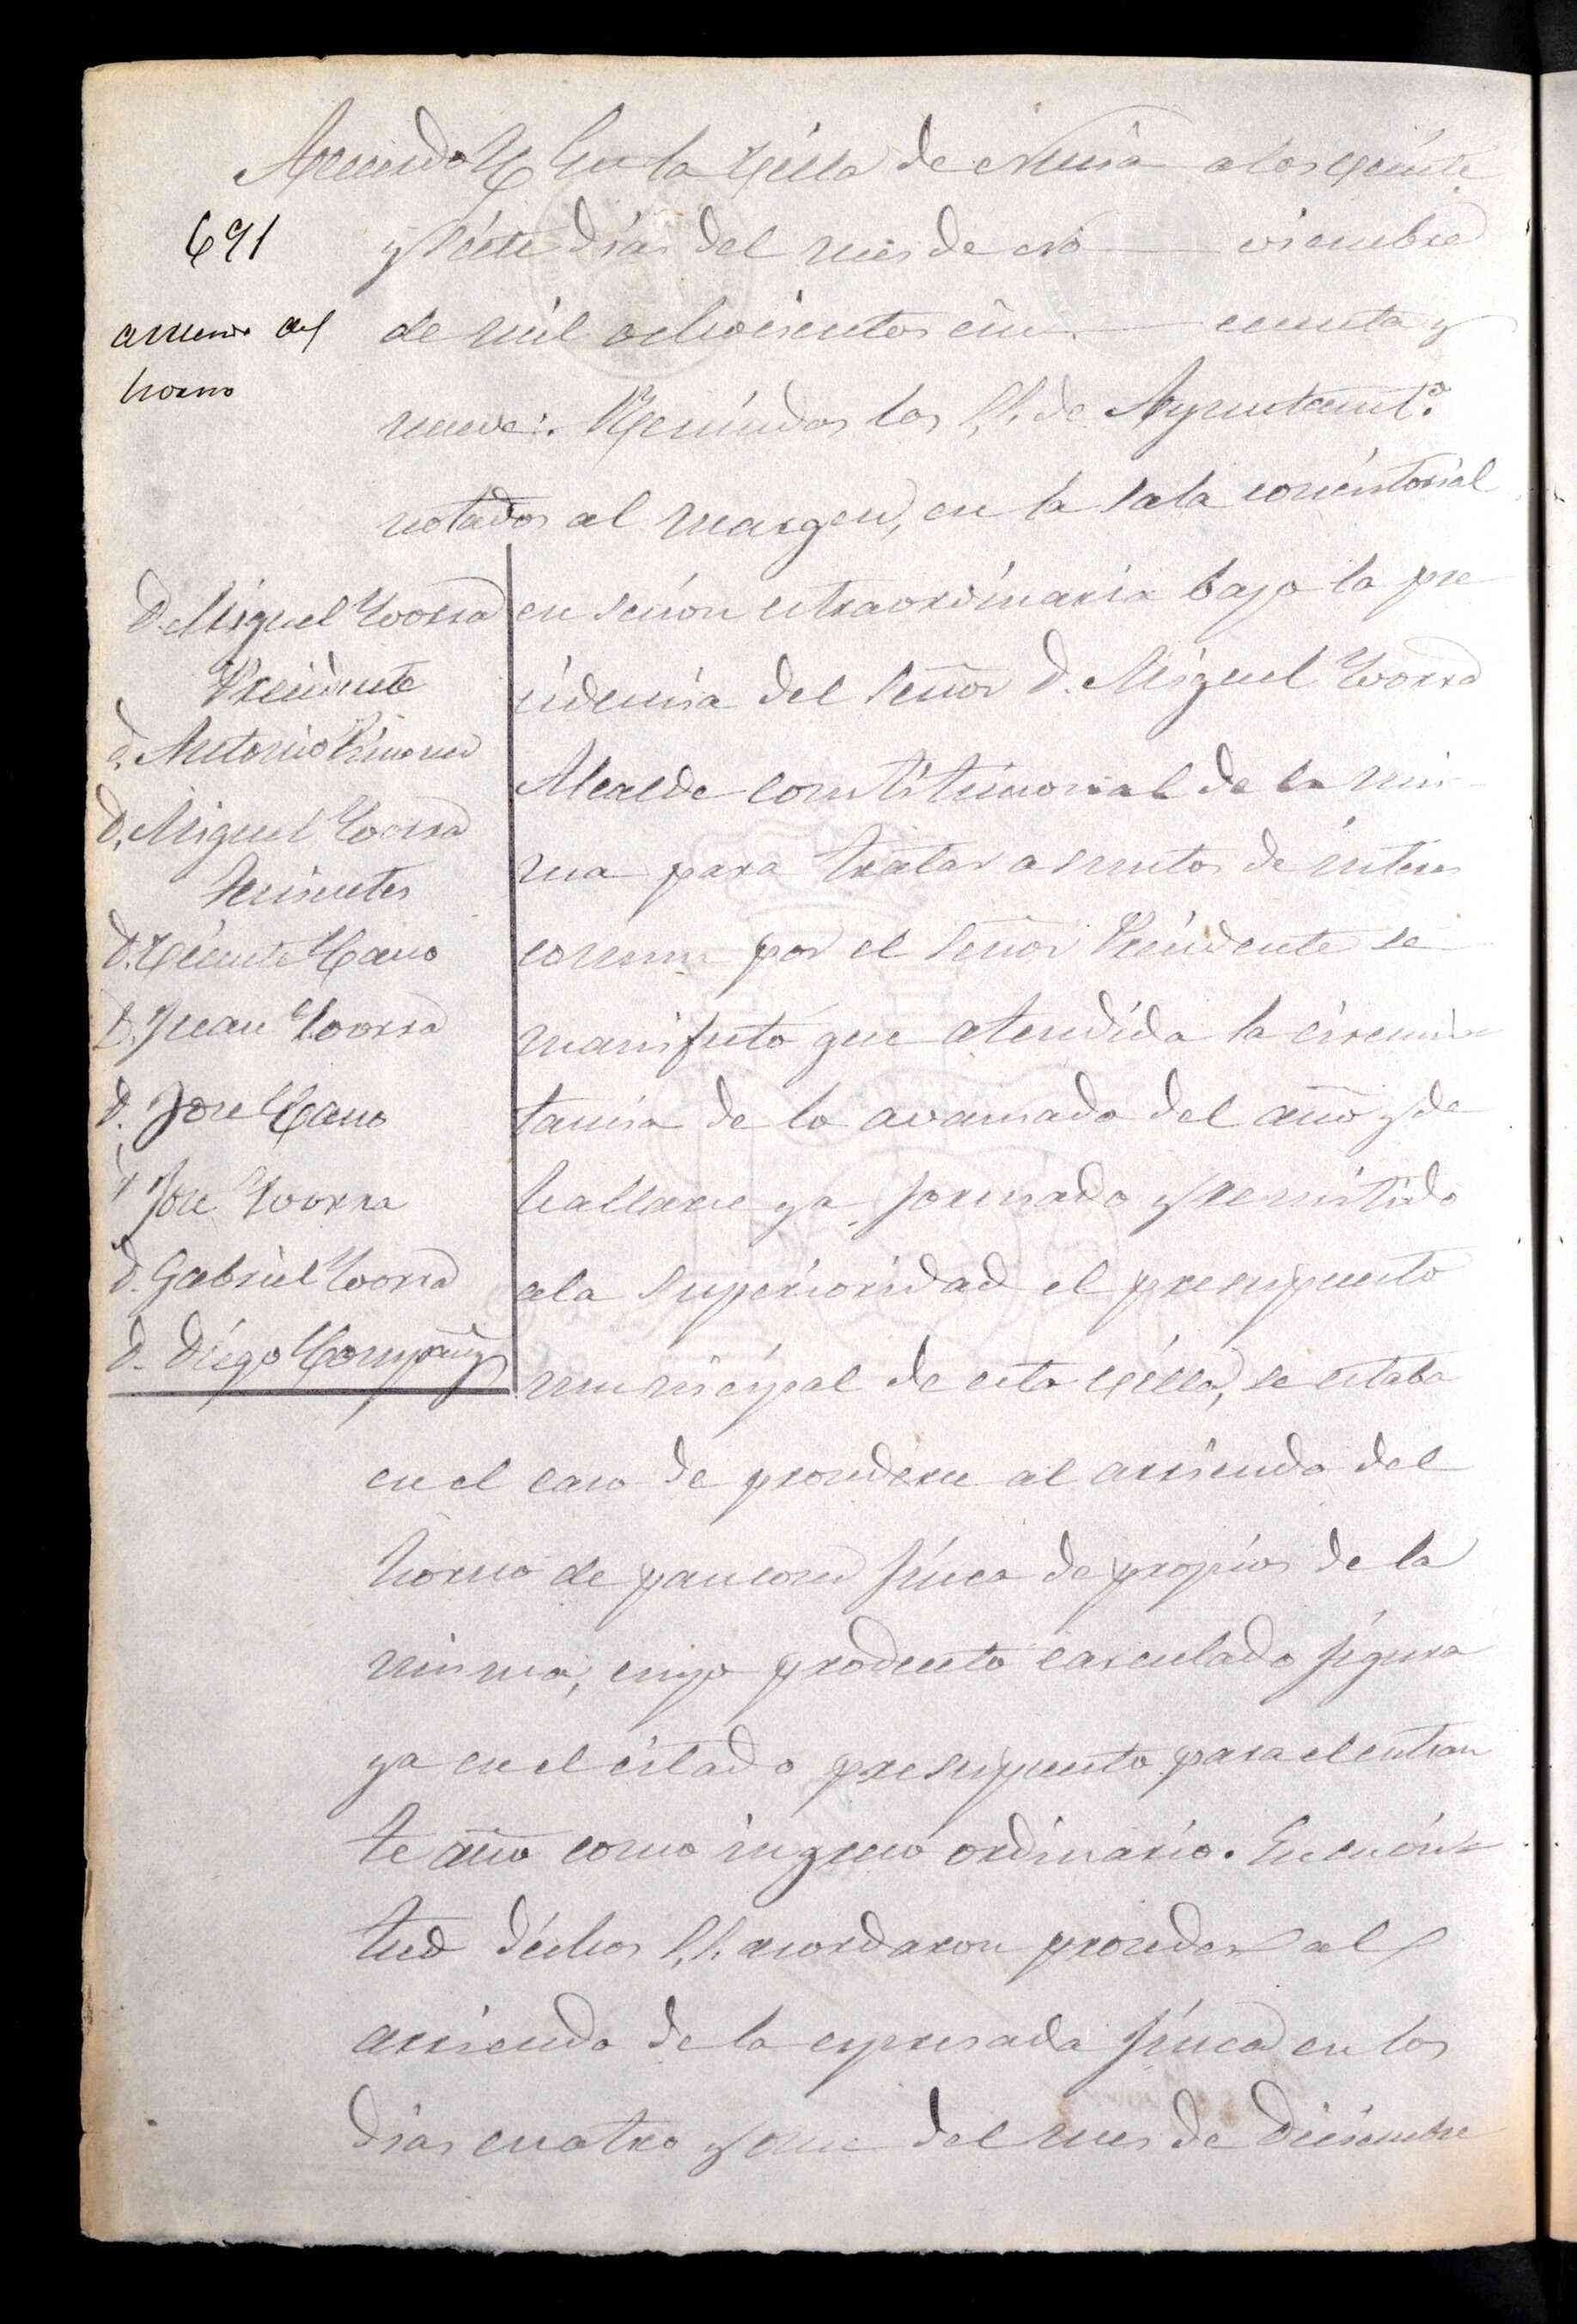 Acuerdo En la Villa de Murla a los veinte
691
y siete dias del mes de No- viembre
arriendo del
de mil ochocientos cin- cuenta y
horno
nueve: Reunidos los S.S. de Ayuntamto.
notados al margen, en la sala concistorial
D. Miguel
Presidente
D. Antonio
D. Miguel
Tenientes
D. Vicente Cano
D. Juan
D. Jose Cano
D. Jose
D. Gabriel
D. Diego Company
en secion estraordinaria bajo la pre
sidencia del Señor D. Miguel
Alcalde constitucional de la mis-
ma para tratar asuntos de interes
comun por el Señor Presidente se
manifestó que atendida la circuns-
tancia de lo avansado del año y de
hallarse ya formado y remitido
ala Superioridad el presupuesto
municipal de esta Villa, se estaba
en el caso de procederse al arriendo del
horno de pancocer finca de propios de la
misma, cuyo producto carculado figura
ya en el citado presupuesto para el entran
te año como ingreso ordinario. En
tud dichos S.S. acordaron proceder al
arriendo de la espresada finca en los
dias cuatro y once del mes de Diciembre